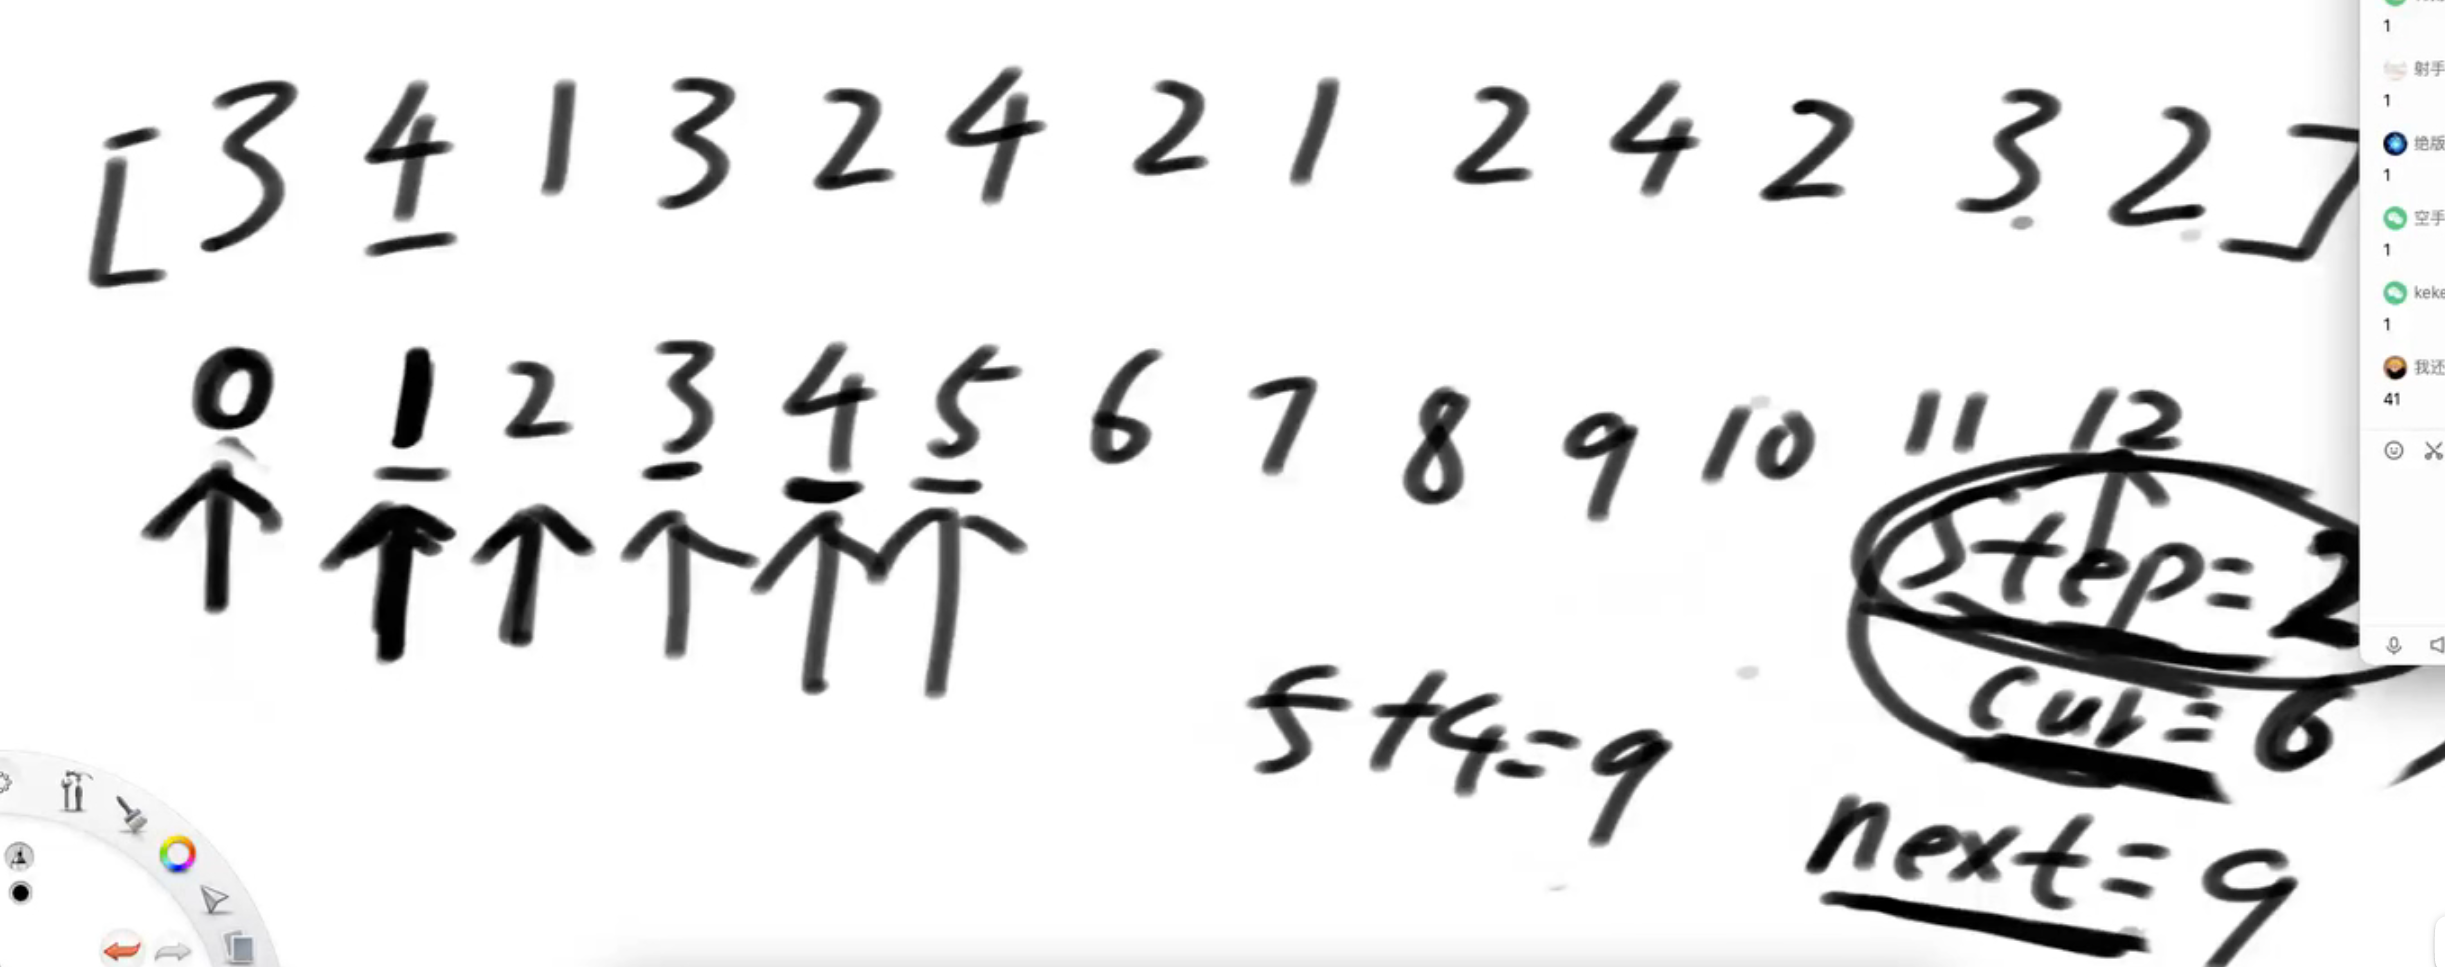 [3 4 1 3 2 4 2 1 2 4 2 3 2]
0 1 2 3 4 5 6 7 8 9 10 11 12
step=2
5+4=9
cur=6
next=9
1
射手
1
绝版
1
空手
1
keke
1
我还
41